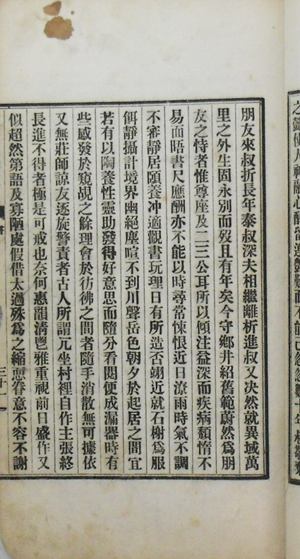 朋友來叔折長年泰叔深夫相繼離析進叔又决然就異域萬
里之外生固永別而歿且有年矣今守鄉井紹舊範蔚然爲朋
友之恃者惟尊座及二三公耳所以傾注益深而疾病頹惰不
易面晤書尺應酬亦不能以時尋常悚恨近日潦雨時氣不調
不審靜居頤養冲適觀書玩理日有所造否翊近就石榭爲服
餌靜攝計境界幽絕塵喧不到川聲岳色朝夕於起居之間宜
若有以陶養性靈助發得好意思而隨分看閱便成漏器時有
些感發於窺覘之餘理會於彷彿之間者隨手消散無可據依
又無莊師諒友逐旋警責者古人所謂兀坐村裡自作主張終
長進不得者極是可戒也奈何惠韻清邕雅重視前日盛作又
似超然第語及寡陋處假借太過殊爲之縮恧眷意不容不謝
三十一